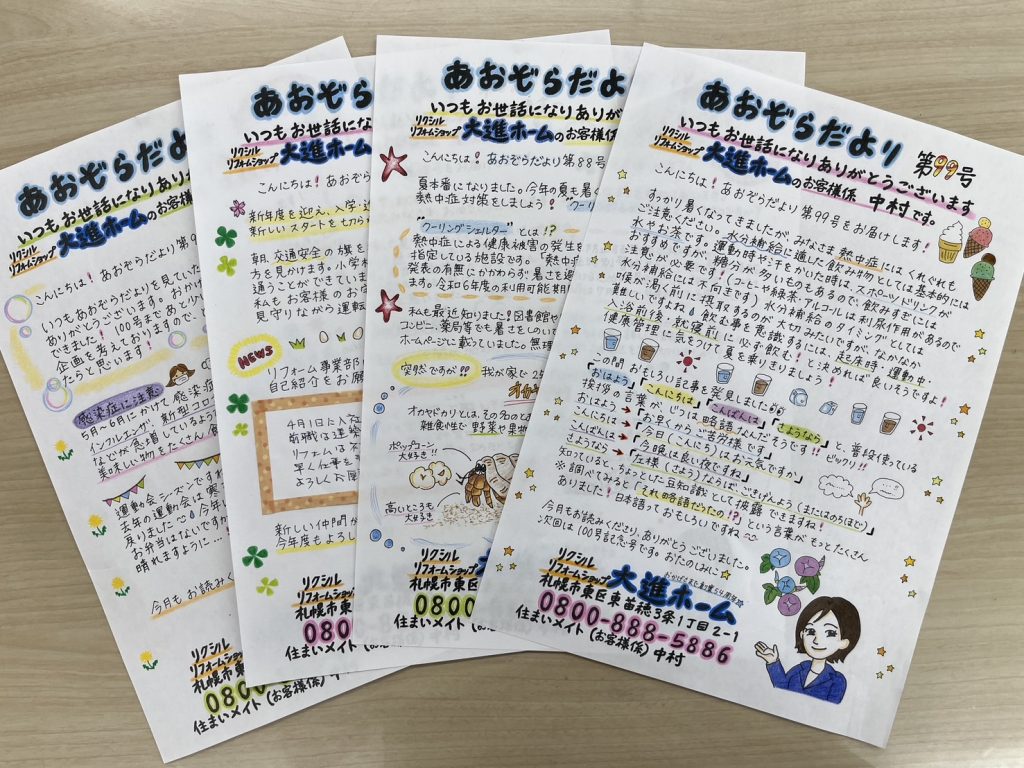 あおぞらだよ
いつもお世話になりあり
リクシル
リフォームショップ
大進ホーム
こんにちは！あおぞらだより第9
いつもあおぞらだよりを見ていた
ありがとうございます。おかげ
できました！100号まであり
企画を考えておりますので、ど
たらと思います！
感染症に注意
5月～6月にかけて、感染症
インフルエンザ、新型コロ
などが急増しているよう
美味しい物をたくさん食
運動会シーズンです
去年の運動会は寒
戻りました
お弁当はないですが
晴れますように…
今月もお読みく
リクシル
リフォームショップ
札幌市東
0800
住まいメイト(お客様係)中
あおぞら
いつもお世話にな
リクシル
リフォームショップ
大進ホーム
こんにちは！あおぞら
新年度を迎え、入学・進
新しいスタートを七から
朝、交通安全の旗を
方を見かけます。小学
通うことができてい
私もお客様のお宅
見守りながら運転
NEWS
リフォーム事業部
自己紹介をお願
4月1日に入社
前職は運輸
リフォームは
早く仕事を
よろしくお
新しい仲間が
今年度もよろし
リクシル
リフォームショップ
札幌市東
080
住まいメイト(お客様係)中村
あおぞらだよ
いつもお世話になりありが
リクシル
リフォームショップ
大進ホームのお客様係
こんにちは！あおぞらだより第88号
夏本番になりました。今年の夏も暑く
熱中症対策をしましょう！"クーリ
"クーリングシェルター"とは!?
熱中症による健康被害の発生を
指定している施設です。「熱中症
発表の有無にかかわらず暑さを避
ます。令和6年度の利用可能期
私も最近知りました！図書館や
コンビニ、薬局等でも暑さをしのいで
ホームページに載っていました。無理
突然ですが!!
我が家で25
オカヤ
オカヤドカリとは、その名のと
雑食性で野菜や果物
ポップコーン
大好き!!
高いところも
大好き
リクシル
リフォームショップ
札幌市東区
0800
住まいメイト(お客様係)中村
あおぞらだより
第99号
いつもお世話になりありがとうございます
リクシル
リフォームショップ
大進ホームのお客様係 中村です。
こんにちは！あおぞらだより第99号をお届けします！
すっかり暑くなってきましたが、みなさま熱中症にはくれぐれも
ご注意ください。水分補給に適した飲み物としては基本的には
水やお茶です。運動時や汗をかいた時は、スポーツドリンクが
おすすめですが、糖分が多いものもあるので、飲みすぎには
注意が必要です！(コーヒーや緑茶・アルコールは利尿作用があるので
水分補給には不向きです)水分補給のタイミングとしては
喉が渇く前に摂取するのが大切みたいですが、なかなか
難しいですね。飲む事を意識するには、起床時・運動中・
入浴前後・就寝前に必ず飲む！と決めれば良いそうですよ！
健康管理に気をつけて夏を乗りきりましょう！
この間おもしろい記事を発見しました
「おはよう」「こんにちは」「こんばんは」「さようなら」と、普段使っている
挨拶の言葉が、じつは略語なんだそうです！ビックリ!!
おはよう→「お早くからご苦労様です」
こんにちは→「今日(こんにち)はお元気ですか」
こんばんは→「今晩は良い夜ですね」
さようなら→「左様(さよう)ならばごきげんよう(またはのちほど)」
知っていると、ちょっとした豆知識として披露できますね！
※調べてみると「それ略語だったの!?」という言葉がもっとたくさん
ありました！日本語っておもしろいですね
今月もお読みくださり、ありがとうございました。
次回は100号記念号です。おたのしみに☆
リクシル
リフォームショップ
おかげさまで創業54周年
大進ホーム
札幌市東区東苗穂3条1丁目2-1
0800-888-5886
住まいメイト(お客様係)中村